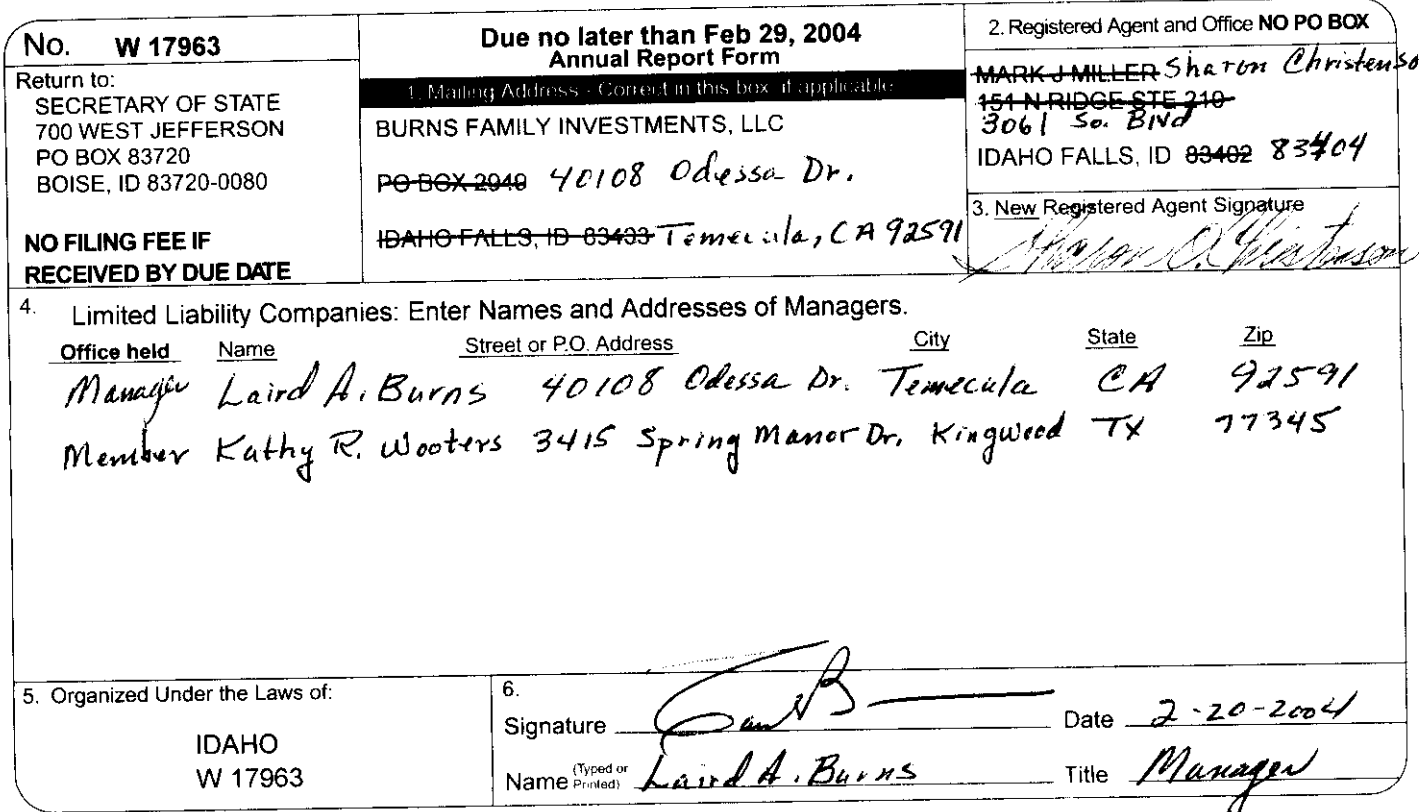 No. W 17963
Return to:
SECRETARY OF STATE
700 WEST JEFFERSON
PO BOX 83720
BOISE, ID 83720-0080
NO FILING FEE IF
RECEIVED BY DUE DATE
Due no later than Feb 29, 2004
Annual Report Form
1. Mailing Address - Correct in this box if applicable
BURNS FAMILY INVESTMENTS, LLC
PO BOX 2949 40108 Odessa Dr.
IDAHO FALLS, ID 83403 Temecula, CA 92591
2. Registered Agent and Office NO PO BOX
MARK J MILLER Sharon Christenso
151 N RIDGE STE 210
3061 So. Blvd
IDAHO FALLS, ID 83402 83404
3. New Registered Agent Signature
Sharon O. Christenson
4. Limited Liability Companies: Enter Names and Addresses of Managers.
Office held Name Street or P.O. Address City State Zip
Manager Laird A. Burns 40108 Odessa Dr. Temecula CA 92591
Member Kathy R. Wooters 3415 Spring Manor Dr. Kingwood TX 77345
5. Organized Under the Laws of:
IDAHO
W 17963
6.
Signature Date 2-20-2004
Name (Typed or Printed) Laird A. Burns Title Manager